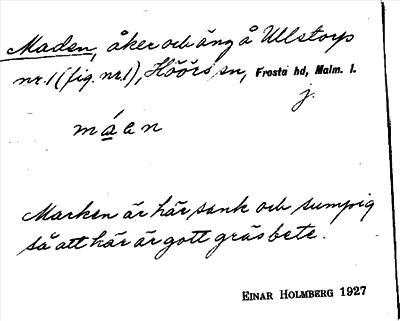 Maden, åker och äng å Ullstorp
nr. 1 (fig. nr. 1), Höörs sn, Frosta hd, Malm. l.
j.
máen
Marken är här sank och sumpig
så att här är gott gräsbete.
EINAR HOLMBERG 1927